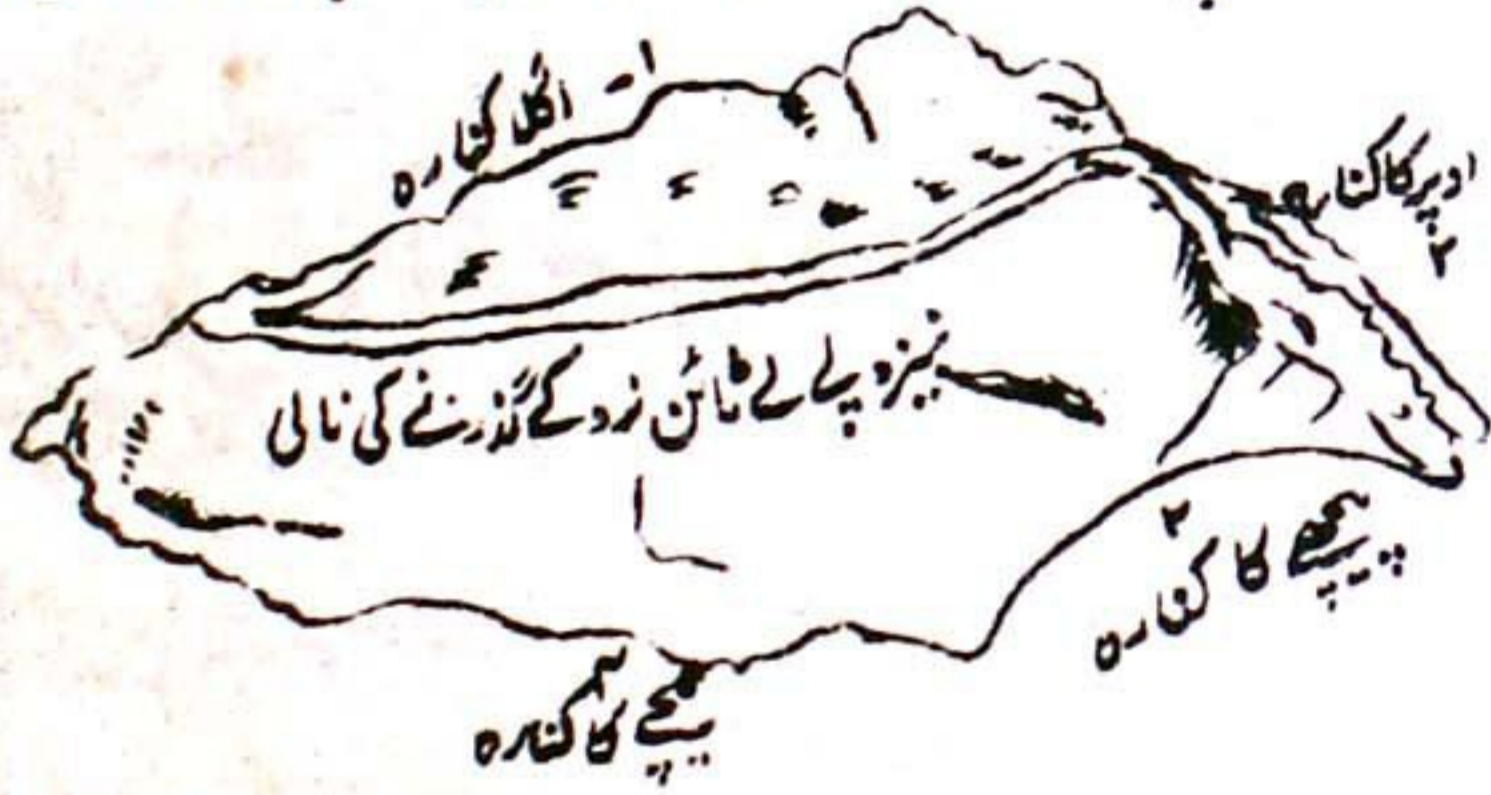 ۱ - اگلا کنارہ
اوپر کا کنارہ
۳
نیزوپے لے ٹائن نرو کے گذرنے کی نالی
۲
پیچھے کا کنارہ
۴
نیچے کا کنارہ